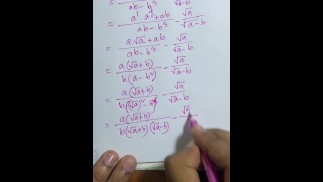 = ab - b³ √a-b
= a² a^½ + ab / ab - b³ - √a / √a-b
= a√a + ab / ab - b³ - √a / √a-b
= a(√a+b) / b(a-b²) - √a / √a-b
= a(√a+b) / b(√a)² - - √a / √a-b
= a(√a+b) / b(√a+b)(√a-b) - √a